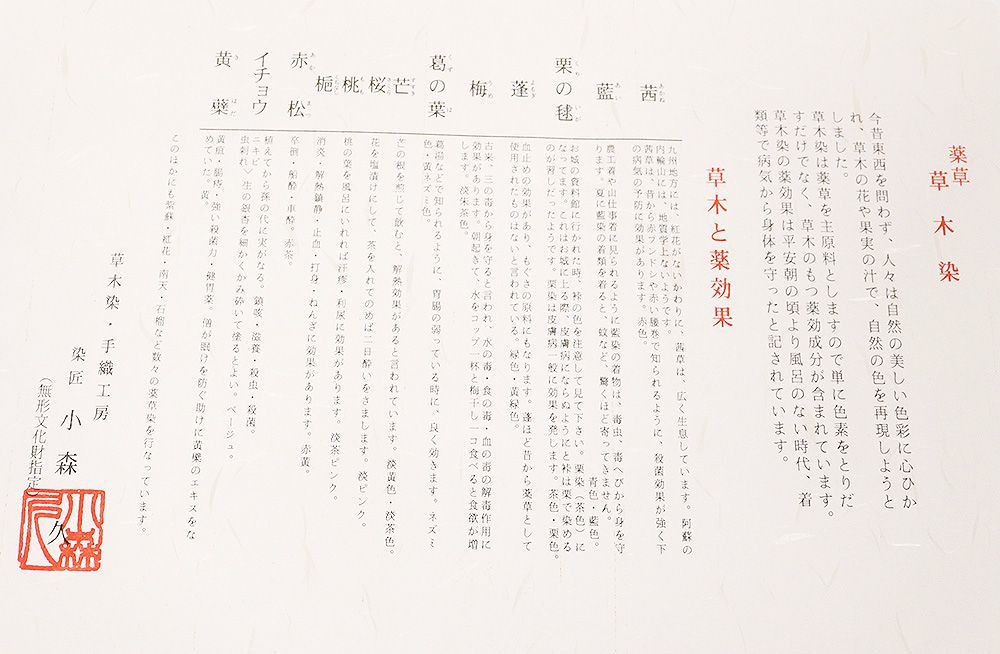 薬草
草木染
今昔東西を問わず、人々は自然の美しい色彩に心ひか
れ、草木の花や果実の汁で、自然の色を再現しようと
しました。
草木染は薬草を主原料としますので単に色素をとりだ
すだけでなく、草木のもつ薬効成分が含まれています。
草木染の薬効果は平安朝の頃より風呂のない時代、着
類等で病気から身体を守ったと記されています。
草木と薬効果
茜
あかね
九州地方には、紅花がないかわりに、茜草は、広く生息しています。阿蘇の
内輪山には、地質学上ないようです。
茜草は、昔から赤フンドシや赤い腰巻で知られるように、殺菌効果が強く下
の病気の予防に効果があります。赤色。
藍
あい
農工着や山仕事着に見られるように藍染の着物は、毒虫、毒へびから身を守
ります。夏に藍染の着類を着ると、蚊など、驚くほど寄ってきません。
青色・藍色。
栗の毬
くり いが
お城の資料館に行かれた時、裃の色を注意して見て下さい。栗染(茶色)に
なってます。これはお城に上る際、皮膚病にならぬようにと裃は栗で染める
のが習しだったようです。栗染は皮膚病一般に効果を発します。茶色・栗色。
蓬
よもぎ
血止めの効果があり、もぐさの原料にもなります。蓬ほど昔から薬草として
使用されたものはないと言われている。緑色・黄緑色。
梅
うめ
古来、三の毒から身を守ると言われ、水の毒・食の毒・血の毒の解毒作用に
効果があります。朝起きて、水をコップ一杯と梅干し一コ食べると食欲が増
します。淡朱茶色。
葛の葉
くず は
葛湯などで知られるように、胃腸の弱っている時に、良く効きます。ネズミ
色・黄ネズミ色。
芒
すすき
芒の根を煎じて飲むと、解熱効果があると言われています。淡黄色・淡茶色。
桜
さくら
花を塩漬けにして、茶を入れてのめば二日酔いをさまします。淡ピンク。
桃
もも
桃の葉を風呂にいれれば汗疹・利尿に効果があります。淡茶ピンク。
梔
消炎・解熱鎮静・止血・打身・ねんざに効果があります。赤黄。
赤松
あか まつ
卒倒・船酔・車酔。赤茶。
イチョウ
植えてから孫の代に実がなる。鎮咳・滋養・殺虫・殺菌。
ニキビ〉生の銀杏を細かくかみ砕いて塗るとよい。ベージュ。
虫刺れ〉
黄蘗
き はだ
黄疸・腸疾・強い殺菌力・健胃薬。僧が眠けを防ぐ助けに黄檗のエキスをな
めていた。黄。
このほかにも紫蘇・紅花・南天・石榴など数々の薬草染を行なっています。
草木染・手織工房
染匠 小森 久
(無形文化財指定)